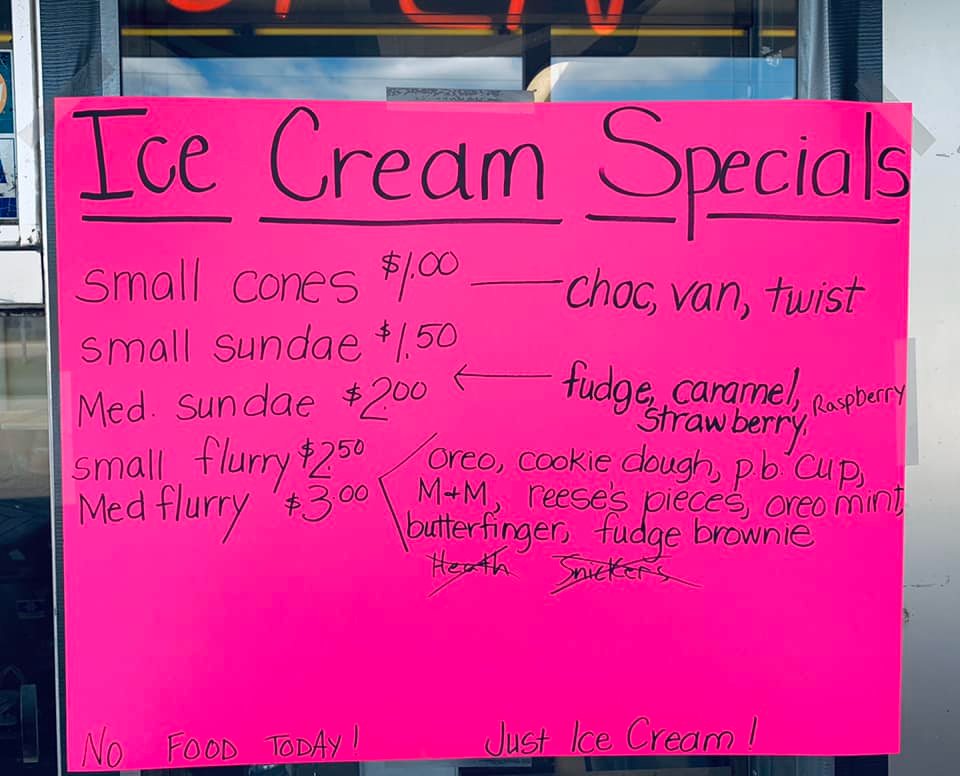 OPEN
Ice Cream Specials
small cones $1.00 — choc, van, twist
small sundae $1.50
Med. sundae $2.00 ← fudge, caramel, Raspberry
strawberry,
small flurry $2.50 oreo, cookie dough, p.b. cup,
Med flurry $3.00 M+M, reese's pieces, oreo mint,
butterfinger, fudge brownie
Heath Snickers
No FOOD TODAY! Just Ice Cream!